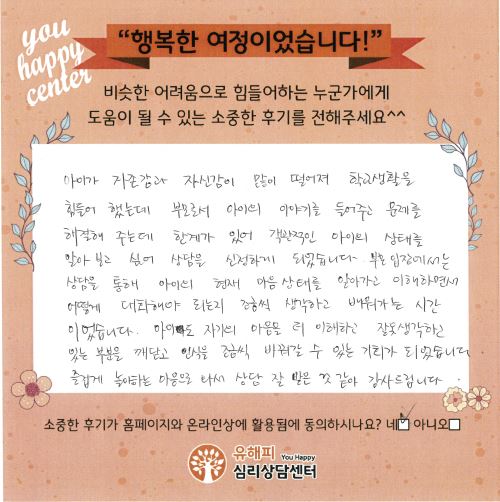 you
happy
center
“행복한 여정이었습니다!”
비슷한 어려움으로 힘들어하는 누군가에게
도움이 될 수 있는 소중한 후기를 전해주세요^^
아이가 자존감과 자신감이 많이 떨어져 학교생활을
힘들어 했는데 부모로서 아이의 이야기를 들어주고 문제를
해결해 주는데 한계가 있어 객관적인 아이의 상태를
알아 보고 싶어 상담을 신청하게 되었습니다. 부모 입장에서는
상담을 통해 아이의 현재 마음상태를 알아가고 이해하면서
어떻게 대화해야 되는지 조금씩 생각하고 배워가는 시간
이었습니다. 아이도 자기의 마음을 더 이해하고 잘못생각하고
있는 부분을 깨닫고 인식을 조금씩 바꿔갈 수 있는 기회가 되었습니다
즐겁게 놀아하는 마음으로 다시 상담 잘 받은 것 같아 감사드립니다.
소중한 후기가 홈페이지와 온라인상에 활용됨에 동의하시나요? 네☑ 아니오□
유해피 You Happy
심리상담센터